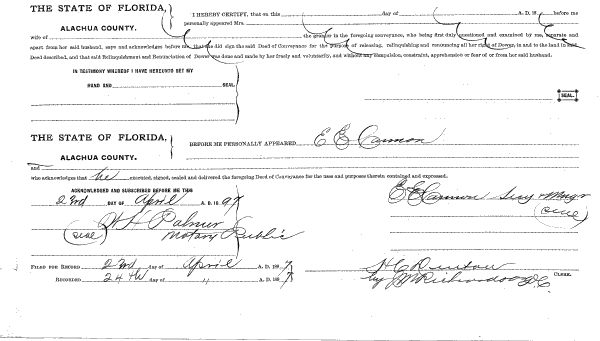 THE STATE OF FLORIDA,
ALACHUA COUNTY.
I HEREBY CERTIFY, that on this day of A. D. 18 before me
personally appeared Mrs.
wife of the grantor in the foregoing conveyance, who being first duly questioned and examined by me, separate and
apart from her said husband, says and acknowledges before me, that she did sign the said Deed of Conveyance for the purpose of releasing, relinquishing and renouncing all her right of Dower, in and to the land in said
Deed described, and that said Relinquishment and Renunciation of Dower was done and made by her freely and voluntarily, and without any compulsion, constraint, apprehension or fear of or from her said husband.
IN TESTIMONY WHEREOF I HAVE HEREUNTO SET MY
HAND AND SEAL.
SEAL.
THE STATE OF FLORIDA,
ALACHUA COUNTY.
BEFORE ME PERSONALLY APPEARED E E Cannon
and
who acknowledges that he executed, signed, sealed and delivered the foregoing Deed of Conveyance for the uses and purposes therein contained and expressed.
ACKNOWLEDGED AND SUBSCRIBED BEFORE ME THIS
22nd DAY OF April A. D. 18 97
E E Cannon Secy & Mangr
(seal)
Palmer
(seal) Notary Public
FILED FOR RECORD 22nd day of April A. D. 189 7
H C Denton CLERK.
RECORDED 24th day of " A. D. 189 7
by Richardson D. C.